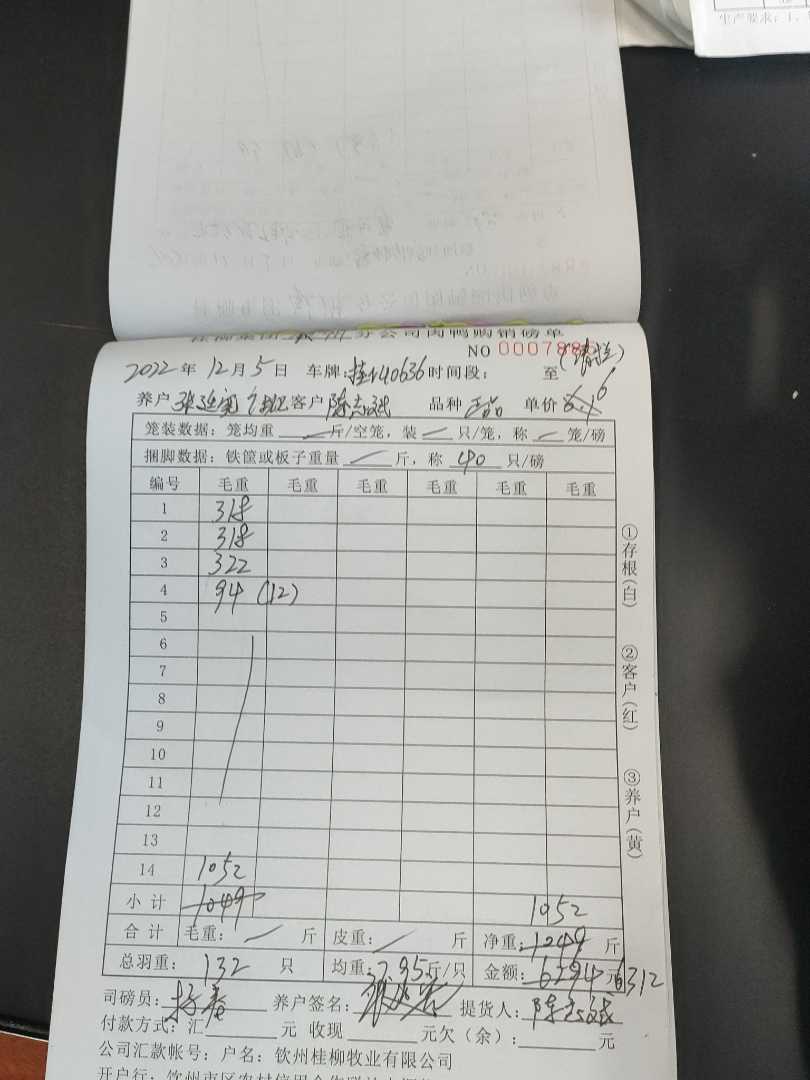 生产要求：1、
分公司肉鸭购销磅单
NO 000788
2022年12月5日 车牌:桂 40636 时间段: 至
养户 客户 陈志斌 品种 单价 6.1 6
笼装数据：笼均重 斤/空笼，装 只/笼，称 笼/磅
捆脚数据：铁筐或板子重量 斤，称 40 只/磅
编号 毛重 毛重 毛重 毛重 毛重 毛重
1 318
2 318
3 322
4 94 (12)
5
6
7
8
9
10
11
12
13
14 1052
小计 1049 1052
合计 毛重： 斤 皮重： 斤 净重：1049 斤
总羽重： 132 只 均重：7.95斤/只 金额：6294元 6312
司磅员： 养户签名： 提货人：陈志斌
付款方式：汇 元 收现 元欠（余）： 元
公司汇款帐号：户名：钦州桂柳牧业有限公司
开户行：钦州市区农村信用合作联社
①存根(白)
②客户(红)
③养户(黄)